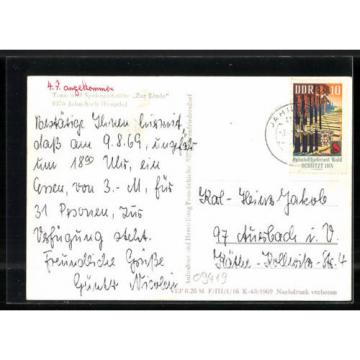 4. 7. angekommen
Tanz- und Speisegaststätte „Zur Linde“
9376 Jahnsbach
Bestätige Ihnen hiermit
daß am 9.8.69, ungefähr
um 18⁰⁰ Uhr, ein
Essen, von 3.- M, für
31 Personen, zur
Verfügung steht.
Freundliche Grüße
Günter
DDR 10
SCHÜTZT IHN
Karl-Heinz Jakob
97 Auerbach i. V.
Käthe-Kollwitz-Str. 4
09419
EVP 0.20 M F/III/1/16 K 43/1969 Nachdruck verboten